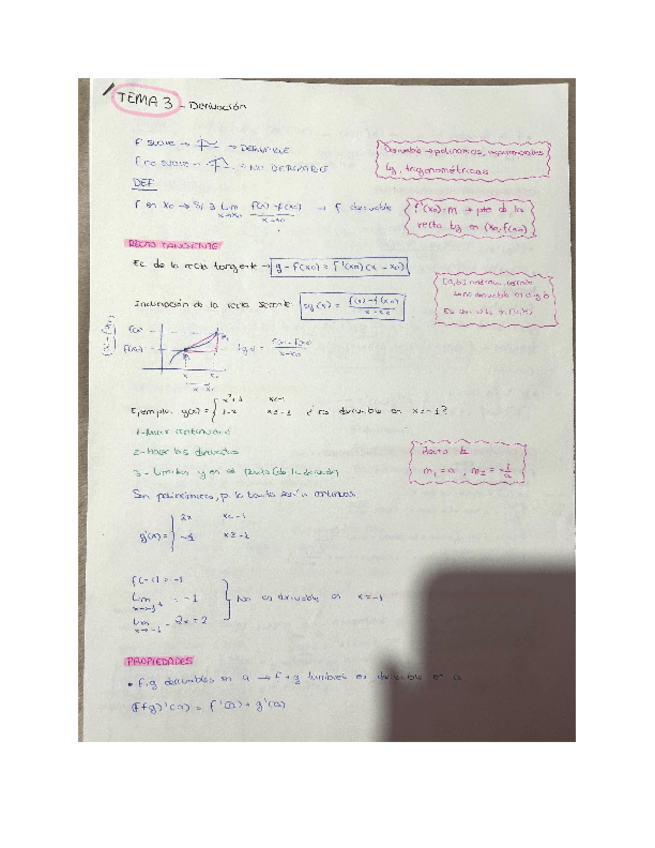 TEMA 3 - Derivación
F suave → → DERIVABLE
F no suave → → NO DERIVABLE
Derivable → polinomios, exponenciales
log, trigonométricas
DEF
F en x₀ → Si ∃ Lim f(x)-f(x₀) → f derivable
x→x₀ x-x₀
f'(x₀)=m → pte de la
recta tg en (x₀, f(x₀))
RECTA TANGENTE
Ec de la recta tangente → y - f(x₀) = f'(x₀)(x - x₀)
Inclinación de la recta secante tg(α) = f(x)-f(x₀)
x-x₀
[a,b]
f(x)
f(x₀)
x x₀
x-x₀
Ejemplo. g(x) = { x²+1 x<-1
1-x x≥-1 ¿es derivable en x=-1?
1-Mirar continuidad
2-Hacer las derivadas
3- Límites y en el punto (de la derivada)
Son polinómicas, p. lo tanto serán continuas
Recta ⊥
m₁=a, m₂=-1/a
g'(x) = { 2x x<-1
-1 x≥-1
f(-1) = -1
Lim = -1
x→-1⁺
Lim = 2x = 2
x→-1⁻
No es derivable en x=-1
PROPIEDADES
• F,g derivables en a → F+g también es derivable en a
(F+g)'(a) = f'(a) + g'(a)